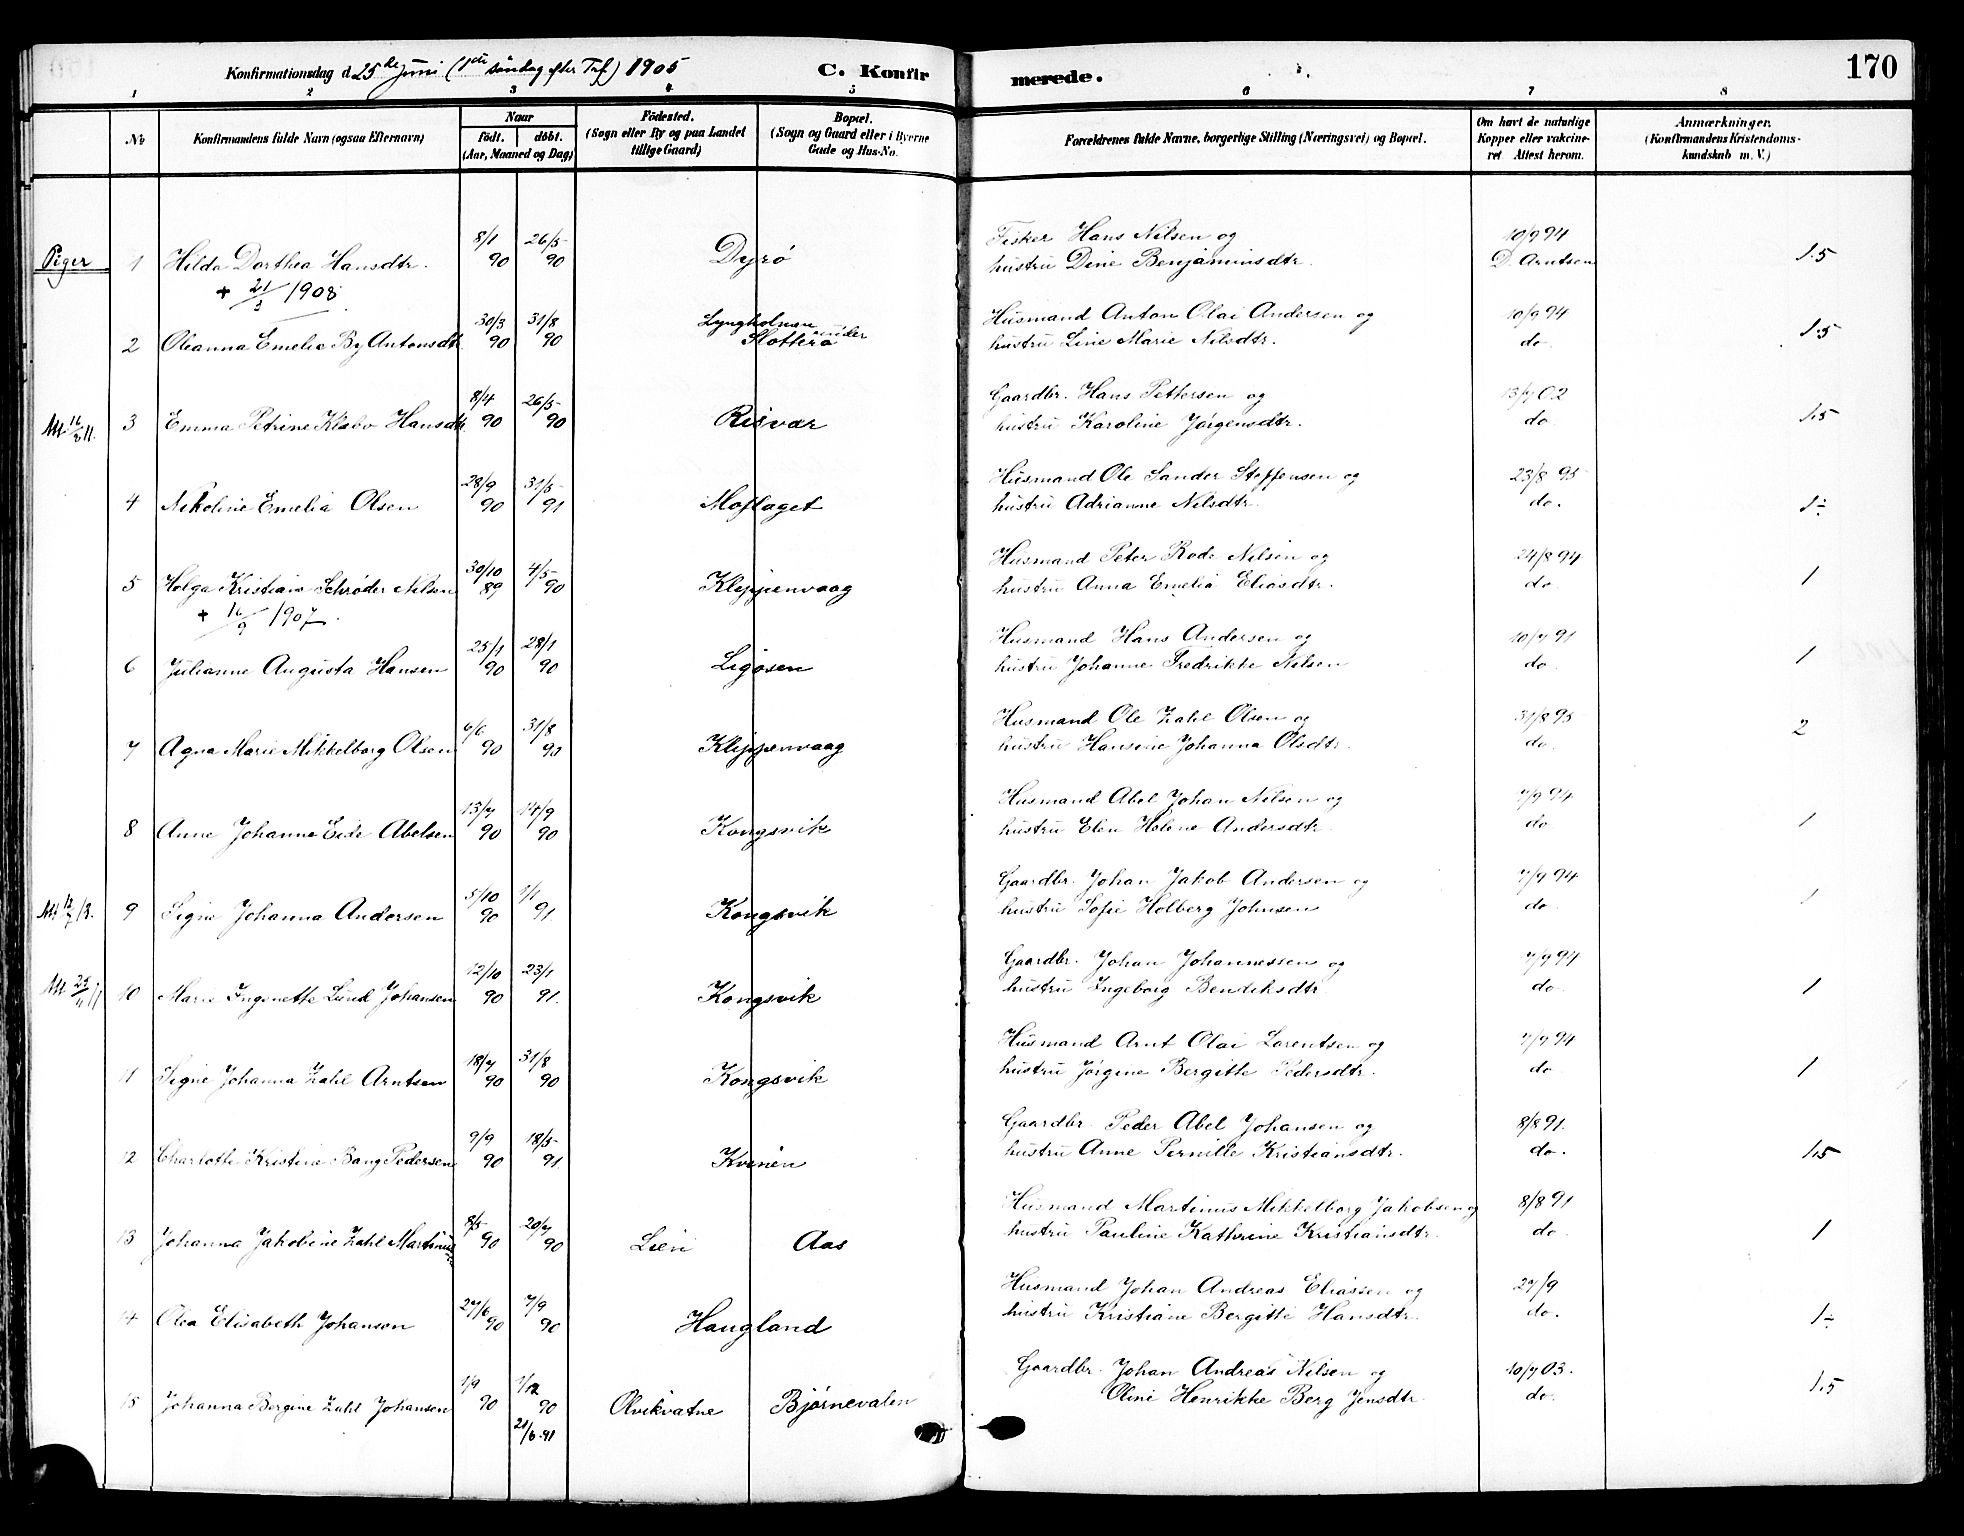 Konfirmationsdag d. 25de Juni (1ste søndag efter Trf.) 1905 C. Konfirmerede. 170
1 2 3 4 5 6 7 8
No Konfirmandens fulde Navn (ogsaa Efternavn) Naar født. døbt. (Aar, Maaned og Dag) Fødested. (Sogn eller By og paa Landet tillige Gaard) Bopæl. (Sogn og Gaard eller i Byerne Gade og Hus-No. Forældrenes fulde Navne, borgerlige Stilling (Næringsvei) og Bopæl. Om havt de naturlige Kopper eller vakcineret Attest herom. Anmærkninger. (Konfirmandens Kristendomskundskab m. V.)
Piger 1 Hilda Dorthea Hansdtr. 8/1 90 26/5 90 Dyrø Fisker Hans Nilsen og 10/9 94
hustru Dine Benjaminsdtr. D. Arntsen 1.5
+ 21/3 1908
2 Oleanna Emelie By Antonsdtr 30/3 90 31/8 90 Lyngholmen under Slotterø Husmand Anton Olai Andersen og 10/9 94
hustru Line Marie Nilsdtr. do. 1.5
3 Emma Petrine Klæbo Hansdtr. 8/4 90 26/5 90 Risvær Gaardbr. Hans Pettersen og 13/7 02
hustru Karoline Jørgensdtr. do. 1.5
4 Nikoline Emelia Olsen 28/9 90 31/5 91 Moflaget Husmand Ole Sander Steffensen og 23/8 95
hustru Adrianne Nilsdtr. do. 1÷
5 Helga Kristians Schrøder Nilsen 30/10 89 4/5 90 Kleppenvaag Husmand Peter Rode Nilsen og 24/8 94
hustru Anna Emelia Eliasdtr. do. 1
+ 16/9 1907.
6 Julianne Augusta Hansen 25/1 90 28/1 90 Ligøsen Husmand Hans Andersen og 10/7 91
hustru Johanne Fredrikke Nilsen do. 1
7 Agna Marie Mikkelborg Olsen 6/6 90 31/8 90 Kleppenvaag Husmand Ole Zahl Olsen og 31/8 95
hustru Hansine Johanna Olsdtr. do. 2
8 Anne Johanne Eide Abelsen 13/7 90 14/9 90 Kongsvik Husmand Abel Johan Nilsen og 7/9 94
hustru Elen Helene Andersdtr. do 1
9 Signe Johanna Andersen 5/10 90 1/1 91 Kongsvik Gaardbr. Johan Jakob Andersen og 7/9 94
hustru Sofie Holberg Johnsen do. 1
10 Marie Ingonette Lund Johansen 12/10 90 23/1 91. Kongsvik Gaardbr. Johan Johannessen og 7/9 94
hustru Ingeborg Bendiksdtr. do. 1
11 Signe Johanna Zahl Arntsen 18/7 90 31/8 90 Kongsvik Husmand Arnt Olai Lorentsen og 7/9 94
hustru Jørgine Bergitte Pedersdtr. do 1
12 Charlotte Kristine Bang Pedersen 9/9 90 18/5 91 Kvinen Gaardbr. Peder Abel Johansen og 8/8 91.
hustru Anne Pernille Kristiansdtr. do. 1.5
13 Johanna Jakobine Zahl Martinus 8/5 90 20/7 90 Lien Aas Husmand Martinus Mikkelborg Jakobsen og 8/8 91
hustru Pauline Kathrine Kristiansdtr. do 1
14 Olea Elisabeth Johansen 27/6 90 7/9 90 Haugland Husmand Johan Andreas Eliassen og 27/9
hustru Kristiane Bergitte Hansdtr. do. 1÷
15 Johanna Bergine Zahl Johansen 1/9 90 7/12 90 Olvikvatne Bjørnevalen Gaardbr. Johan Andreas Nilsen og 10/7 03.
Oline Henrikke Berg Jensdtr. do. 1.5
21/6 91